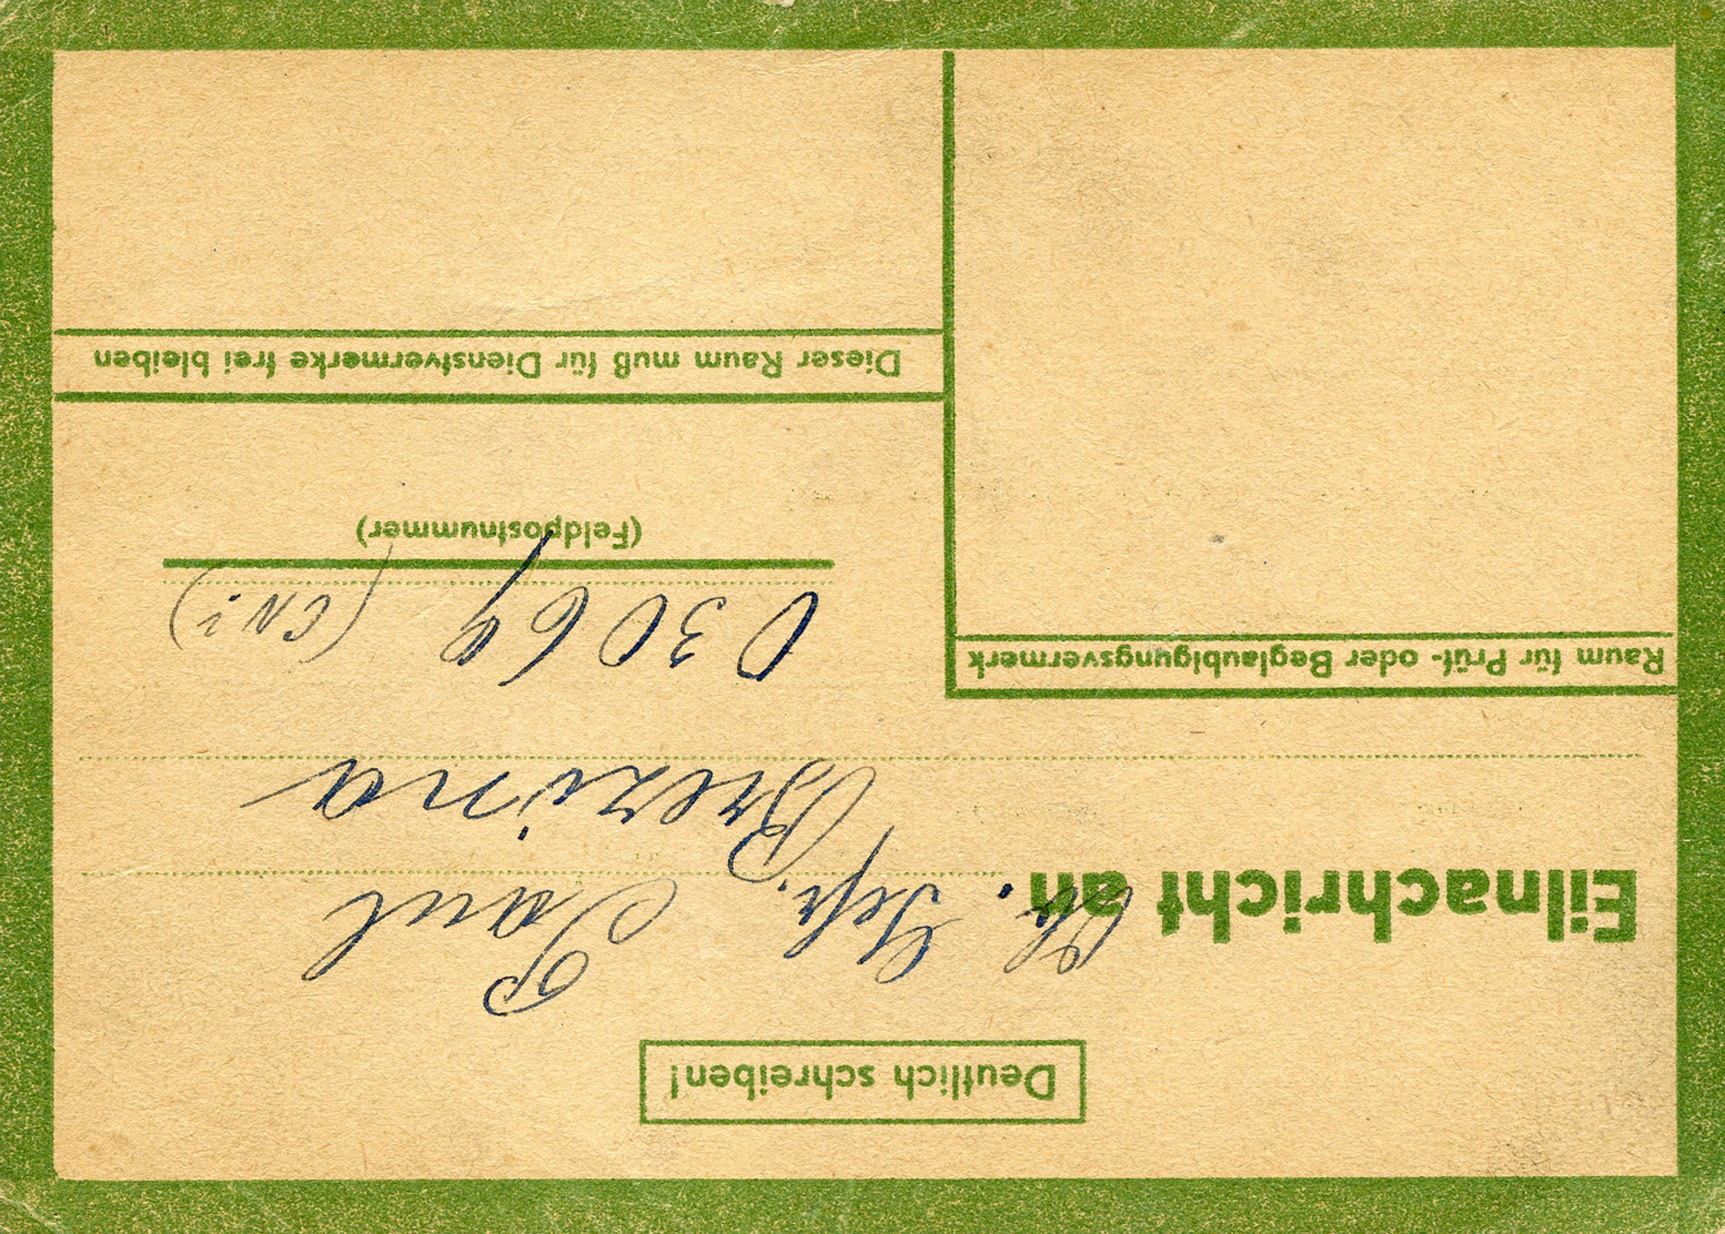 Deutlich schreiben!
Eilnachricht an
Gefr. Paul
Brezina
03069
(Feldpostnummer)
Raum für Prüf- oder Beglaubigungsvermerk
Dieser Raum muß für Dienstvermerke frei bleiben